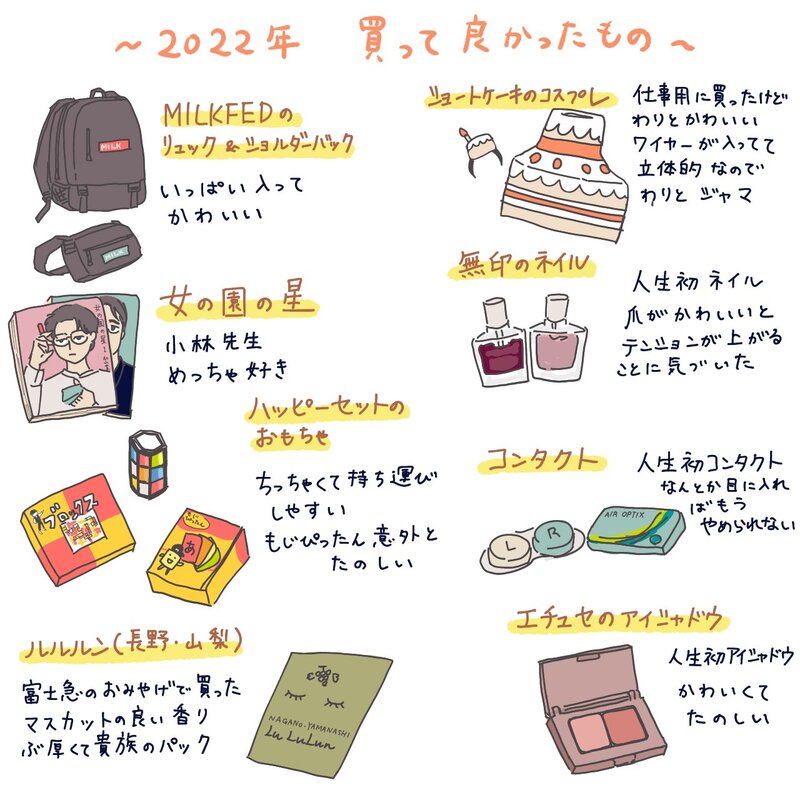 ～2022年 買って良かったもの～
MILKFEDの
リュック&ショルダーバック
いっぱい入って
かわいい
MILK
MILK
女の園の星
小林先生
めっちゃ好き
女の園の星
ハッピーセットの
おもちゃ
ちっちゃくて持ち運び
しやすい
もじぴったん意外と
たのしい
ブロックス
もじぴったん
あ
ルルルン(長野・山梨)
富士急のおみやげで買った
マスカットの良い香り
ぶ厚くて貴族のパック
NAGANO・YAMANASHI
LuLuLun
ショートケーキのコスプレ
仕事用に買ったけど
わりとかわいい
ワイヤーが入ってて
立体的なので
わりとジャマ
無印のネイル
人生初ネイル
爪がかわいいと
テンションが上がる
ことに気づいた
コンタクト
人生初コンタクト
なんとか目に入れ
ばもう
やめられない
L
R
AIR OPTIX
エテュセのアイシャドウ
人生初アイシャドウ
かわいくて
たのしい